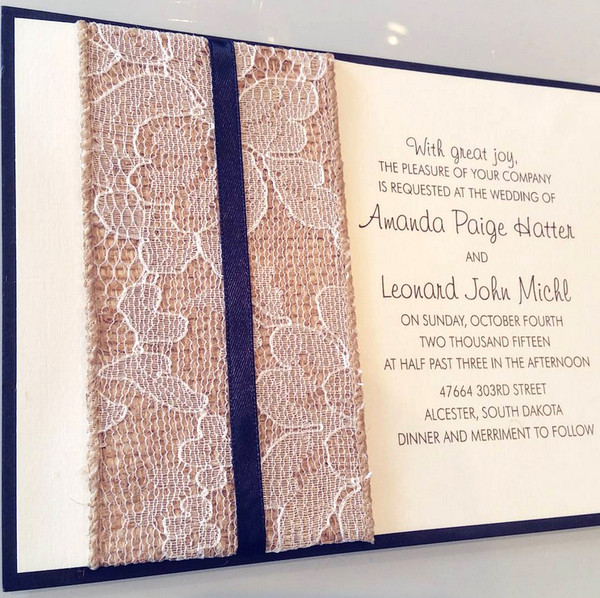 With great joy,
THE PLEASURE OF YOUR COMPANY
IS REQUESTED AT THE WEDDING OF
Amanda Paige Hatter
AND
Leonard John Michl
ON SUNDAY, OCTOBER FOURTH
TWO THOUSAND FIFTEEN
AT HALF PAST THREE IN THE AFTERNOON
47664 303RD STREET
ALCESTER, SOUTH DAKOTA
DINNER AND MERRIMENT TO FOLLOW